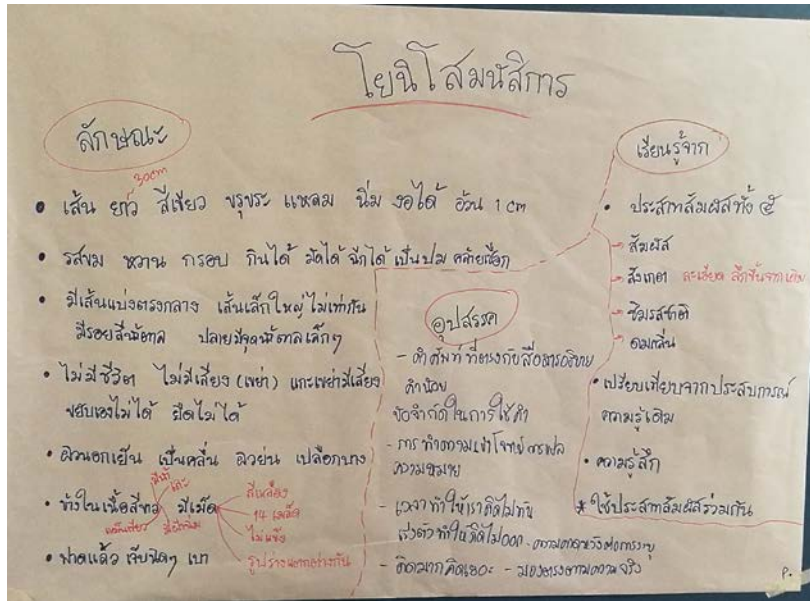 โยนิโสมนัสิการ
ลักษณะ
30cm
• เส้น ยาว สีเขียว ขรุขระ แหลม นิ่ม งอได้ อ้วน 1 cm
• รสขม หวาน กรอบ กินได้ มัดได้ ฉีกได้ เป็นปม คล้ายเชือก
• มีเส้นแบ่งตรงกลาง เส้นเล็กใหญ่ไม่เท่ากัน
มีรอยสีน้ำตาล ปลายมีจุดน้ำตาลเล็กๆ
• ไม่มีชีวิต ไม่มีเสียง (เขย่า) แกะเขย่ามีเสียง
ขยับเองไม่ได้ ยืดไม่ได้
• ผิวนอกเย็น เป็นคลื่น ผิวย่น เปลือกบาง
• ข้างในเนื้อสีขาว มีเมล็ด
สีเหลือง
14 เมล็ด
ไม่แข็ง
รูปร่างแตกต่างกัน
• ฟาดแล้ว เจ็บนิดๆ เบา
อุปสรรค
- คำศัพท์ที่ตรงกับสื่อสารอธิบาย
คำน้อย
ข้อจำกัดในการใช้คำ
- การทำความเข้าใจโจทย์ การแปล
ความหมาย
- เวลาทำให้เราคิดไม่ทัน
เร่งตัวทำให้คิดไม่ออก - ความคาดหวังต่อการระบุ
- คิดมากคิดเยอะ - มองตรงตามความจริง
เรียนรู้จาก
• ประสาทสัมผัสทั้ง ๕
→ สัมผัส
→ สังเกต ละเอียด ลึกขึ้นจากเดิม
→ ชิมรสชาติ
→ ดมกลิ่น
• เปรียบเทียบจากประสบการณ์
ความรู้เดิม
• ความรู้สึก
* ใช้ประสาทสัมผัสร่วมกัน
P.